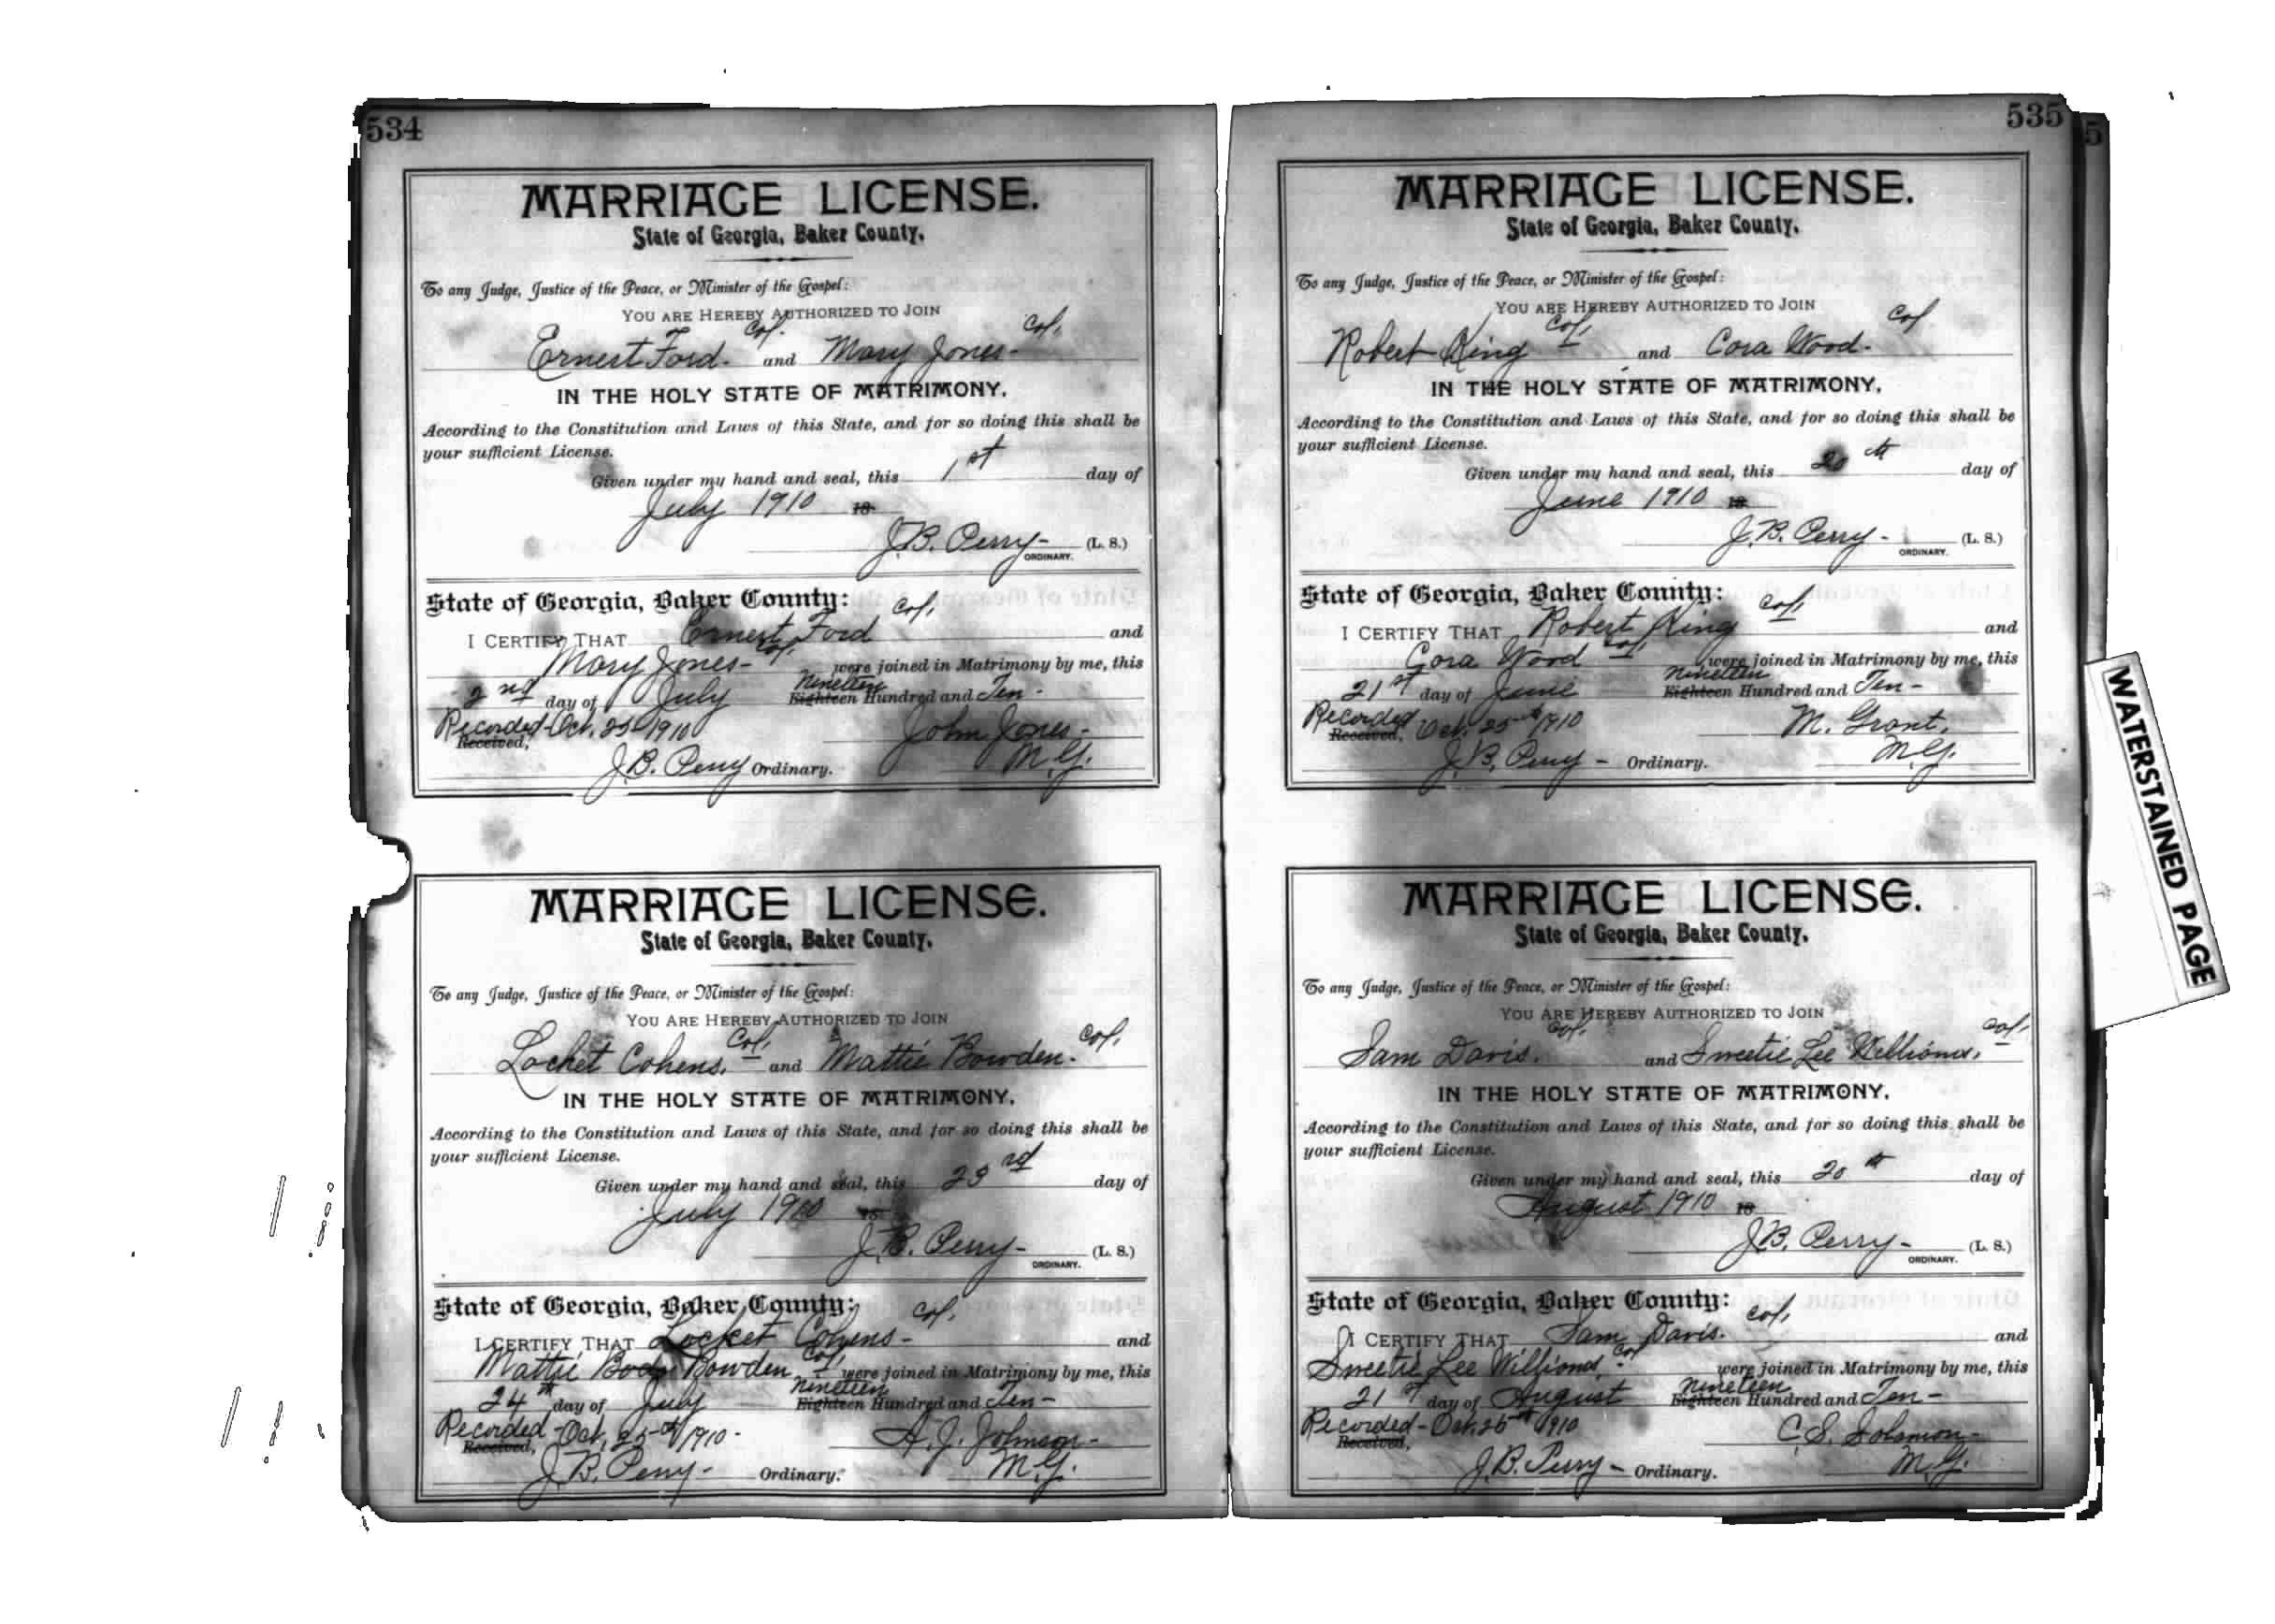 534
MARRIAGE LICENSE.
State of Georgia, Baker County,
To any Judge, Justice of the Peace, or Minister of the Gospel:
YOU ARE HEREBY AUTHORIZED TO JOIN
Ernest Ford. Col. and Mary Jones- Col,
IN THE HOLY STATE OF MATRIMONY,
According to the Constitution and Laws of this State, and for so doing this shall be
your sufficient License.
Given under my hand and seal, this 1st day of
July 1910 18
J.B. Perry- (L. S.)
ORDINARY.
State of Georgia, Baker County:
I CERTIFY THAT Ernest Ford Col, and
Mary Jones- Col, were joined in Matrimony by me, this
2nd day of July Nineteen Eighteen Hundred and Ten-
Recorded-Oct, 25 1910 John Jones-
Received,
J.B. Perry Ordinary. M.G.
MARRIAGE LICENSE.
State of Georgia, Baker County,
To any Judge, Justice of the Peace, or Minister of the Gospel:
YOU ARE HEREBY AUTHORIZED TO JOIN
Locket Cohens, Col, and Mattie Bowden. Col,
IN THE HOLY STATE OF MATRIMONY,
According to the Constitution and Laws of this State, and for so doing this shall be
your sufficient License.
Given under my hand and seal, this 23rd day of
July 1910 18
J.B. Perry- (L. S.)
ORDINARY.
State of Georgia, Baker County:
I CERTIFY THAT Locket Cohens- Col, and
Mattie Bowden Col, were joined in Matrimony by me, this
24th day of July Nineteen Eighteen Hundred and Ten-
Recorded-Oct, 25th 1910- A.J. Johnson-
Received,
J.B. Perry- Ordinary. M.G.
535
MARRIAGE LICENSE.
State of Georgia, Baker County,
To any Judge, Justice of the Peace, or Minister of the Gospel:
YOU ARE HEREBY AUTHORIZED TO JOIN
Robert King Col, and Cora Wood. Col
IN THE HOLY STATE OF MATRIMONY,
According to the Constitution and Laws of this State, and for so doing this shall be
your sufficient License.
Given under my hand and seal, this 20th day of
June 1910 18
J.B. Perry- (L. S.)
ORDINARY.
State of Georgia, Baker County:
I CERTIFY THAT Robert King Col, and
Cora Wood Col, were joined in Matrimony by me, this
21st day of June Nineteen Eighteen Hundred and Ten-
Recorded Oct. 25th 1910 M. Grant,
Received,
J.B. Perry- Ordinary. M.G.
MARRIAGE LICENSE.
State of Georgia, Baker County,
To any Judge, Justice of the Peace, or Minister of the Gospel:
YOU ARE HEREBY AUTHORIZED TO JOIN
Sam Davis. Col, and Sweetie Lee Williams, Col,
IN THE HOLY STATE OF MATRIMONY,
According to the Constitution and Laws of this State, and for so doing this shall be
your sufficient License.
Given under my hand and seal, this 20th day of
August 1910 18
J.B. Perry- (L. S.)
ORDINARY.
State of Georgia, Baker County:
I CERTIFY THAT Sam Davis. Col, and
Sweetie Lee Williams, Col were joined in Matrimony by me, this
21st day of August Nineteen Eighteen Hundred and Ten-
Recorded-Oct. 25th 1910 C.S. Solomon-
Received,
J.B. Perry- Ordinary. M.G.
5
WATERSTAINED PAGE